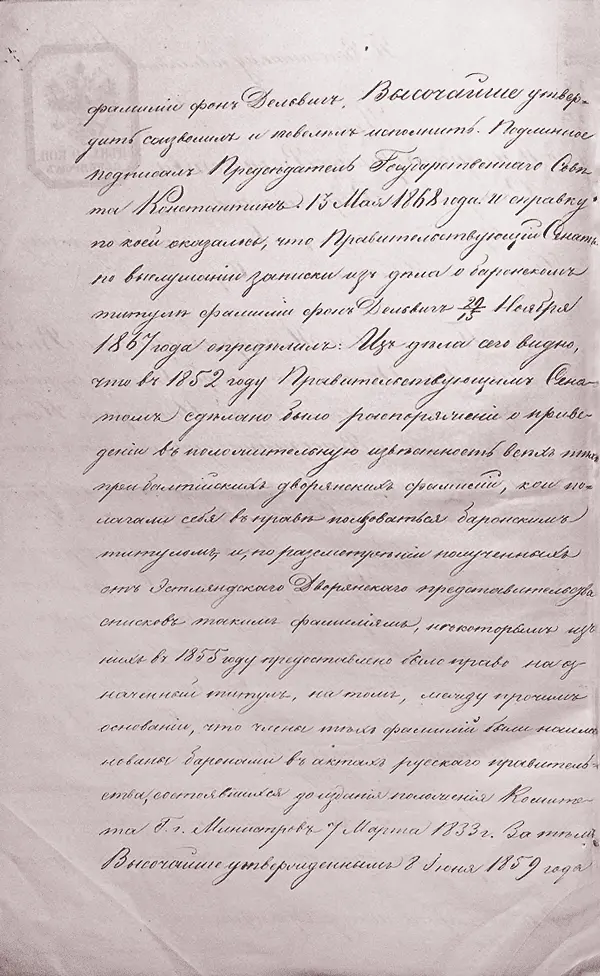 фамиліи фонъ Дельвигъ, Высочайше утвер-
дить соизволилъ и повелѣлъ исполнить. Подлинное
подписалъ Предсѣдатель Государственнаго Совѣ-
та Константинъ. 13 Мая 1868 года. И справку
по коей оказалось, что Правительствующій Сенатъ
по выслушаніи записки изъ дѣла о баронскомъ
титулѣ фамиліи фонъ Дельвигъ 29/15 Ноября
1867 года опредѣлилъ: Изъ дѣла сего видно,
что въ 1852 году Правительствующимъ Сена-
томъ сдѣлано было распоряженіе о приве-
деніи въ положительную извѣстность всѣхъ тѣхъ
прибалтійскихъ дворянскихъ фамилій, кои по-
лагали себя въ правѣ пользоваться баронскимъ
титуломъ, и, по разсмотрѣніи полученныхъ
отъ Эстляндскаго Дворянскаго представительства
списковъ такимъ фамиліямъ, нѣкоторымъ изъ
нихъ въ 1855 году предоставлено было право на оз-
наченный титулъ, на томъ, между прочимъ
основаніи, что члены тѣхъ фамилій были наиме-
нованы баронами въ актахъ русскаго правитель-
ства, состоявшихся до изданія положенія Комите-
та Г. г. Министровъ 7 Марта 1833 г. Затѣмъ
Высочайше утвержденнымъ 8 Іюня 1859 года